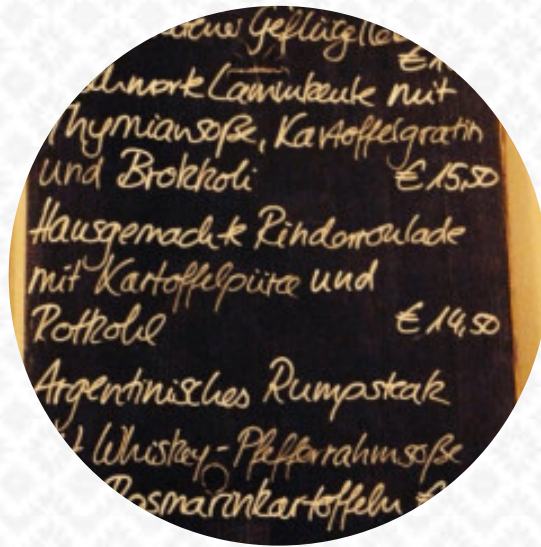 Geflügelle
€1
Lammkeule mit
Thymiansoße, Kartoffelgratin
und Brokkoli €15,50
Hausgemachte Rinderroulade
mit Kartoffelpüree und
Rotkohl €14,50
Argentinisches Rumpsteak
Whiskey-Pfefferrahmsoße
Rosmarinkartoffeln €